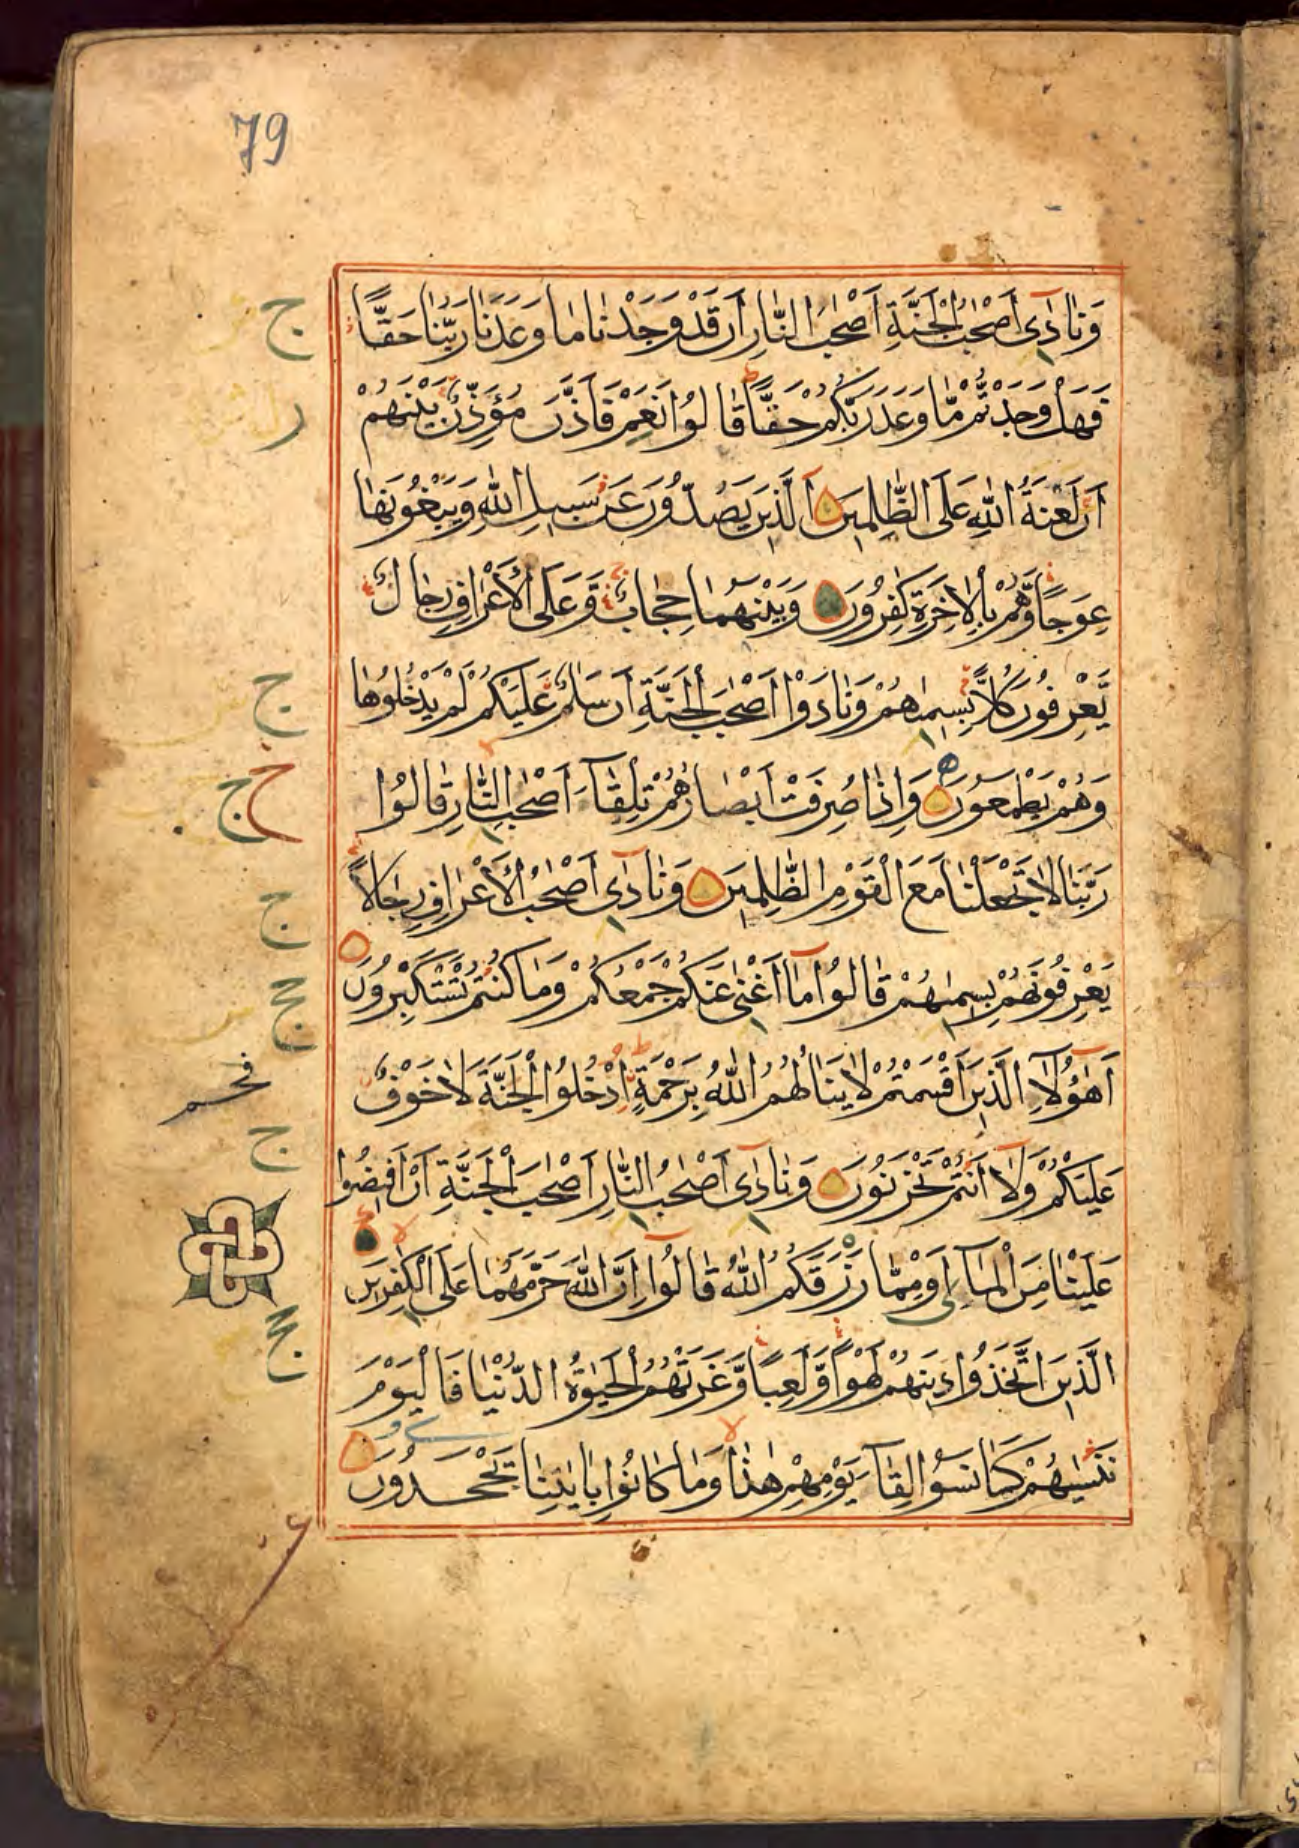 79
وَنَادَىٰ أَصْحٰبُ الْجَنَّةِ أَصْحٰبَ النَّارِ أَنْ قَدْ وَجَدْنَا مَا وَعَدَنَا رَبُّنَا حَقًّا
فَهَلْ وَجَدْتُّمْ مَّا وَعَدَ رَبُّكُمْ حَقًّا قَالُوا نَعَمْ فَأَذَّنَ مُؤَذِّنٌ بَيْنَهُمْ
أَنْ لَعْنَةُ اللهِ عَلَى الظّٰلِمِينَ الَّذِينَ يَصُدُّونَ عَنْ سَبِيلِ اللهِ وَيَبْغُونَهَا
عِوَجًا وَّهُمْ بِالْاٰخِرَةِ كٰفِرُونَ وَبَيْنَهُمَا حِجَابٌ وَعَلَى الْأَعْرَافِ رِجَالٌ
يَّعْرِفُونَ كُلًّا بِسِيمٰاهُمْ وَنَادَوْا أَصْحٰبَ الْجَنَّةِ أَنْ سَلٰمٌ عَلَيْكُمْ لَمْ يَدْخُلُوهَا
وَهُمْ يَطْمَعُونَ وَإِذَا صُرِفَتْ أَبْصَارُهُمْ تِلْقَآءَ أَصْحٰبِ النَّارِ قَالُوا
رَبَّنَا لَا تَجْعَلْنَا مَعَ الْقَوْمِ الظّٰلِمِينَ وَنَادَىٰ أَصْحٰبُ الْأَعْرَافِ رِجَالًا
يَعْرِفُونَهُمْ بِسِيمٰهُمْ قَالُوا مَآ أَغْنٰى عَنْكُمْ جَمْعُكُمْ وَمَا كُنْتُمْ تَسْتَكْبِرُونَ
أَهٰؤُلَآءِ الَّذِينَ أَقْسَمْتُمْ لَا يَنَالُهُمُ اللهُ بِرَحْمَةٍ اُدْخُلُوا الْجَنَّةَ لَا خَوْفٌ
عَلَيْكُمْ وَلَآ أَنْتُمْ تَحْزَنُونَ وَنَادَىٰ أَصْحٰبُ النَّارِ أَصْحٰبَ الْجَنَّةِ أَنْ أَفِيضُوا
عَلَيْنَا مِنَ الْمَآءِ أَوْ مِمَّا رَزَقَكُمُ اللهُ قَالُوا إِنَّ اللهَ حَرَّمَهُمَا عَلَى الْكٰفِرِينَ
الَّذِينَ اتَّخَذُوا دِينَهُمْ لَهْوًا وَّلَعِبًا وَّغَرَّتْهُمُ الْحَيٰوةُ الدُّنْيَا فَالْيَوْمَ
نَنْسٰيهُمْ كَمَا نَسُوا لِقَآءَ يَوْمِهِمْ هٰذَا وَمَا كَانُوا بِاٰيٰتِنَا يَجْحَدُونَ